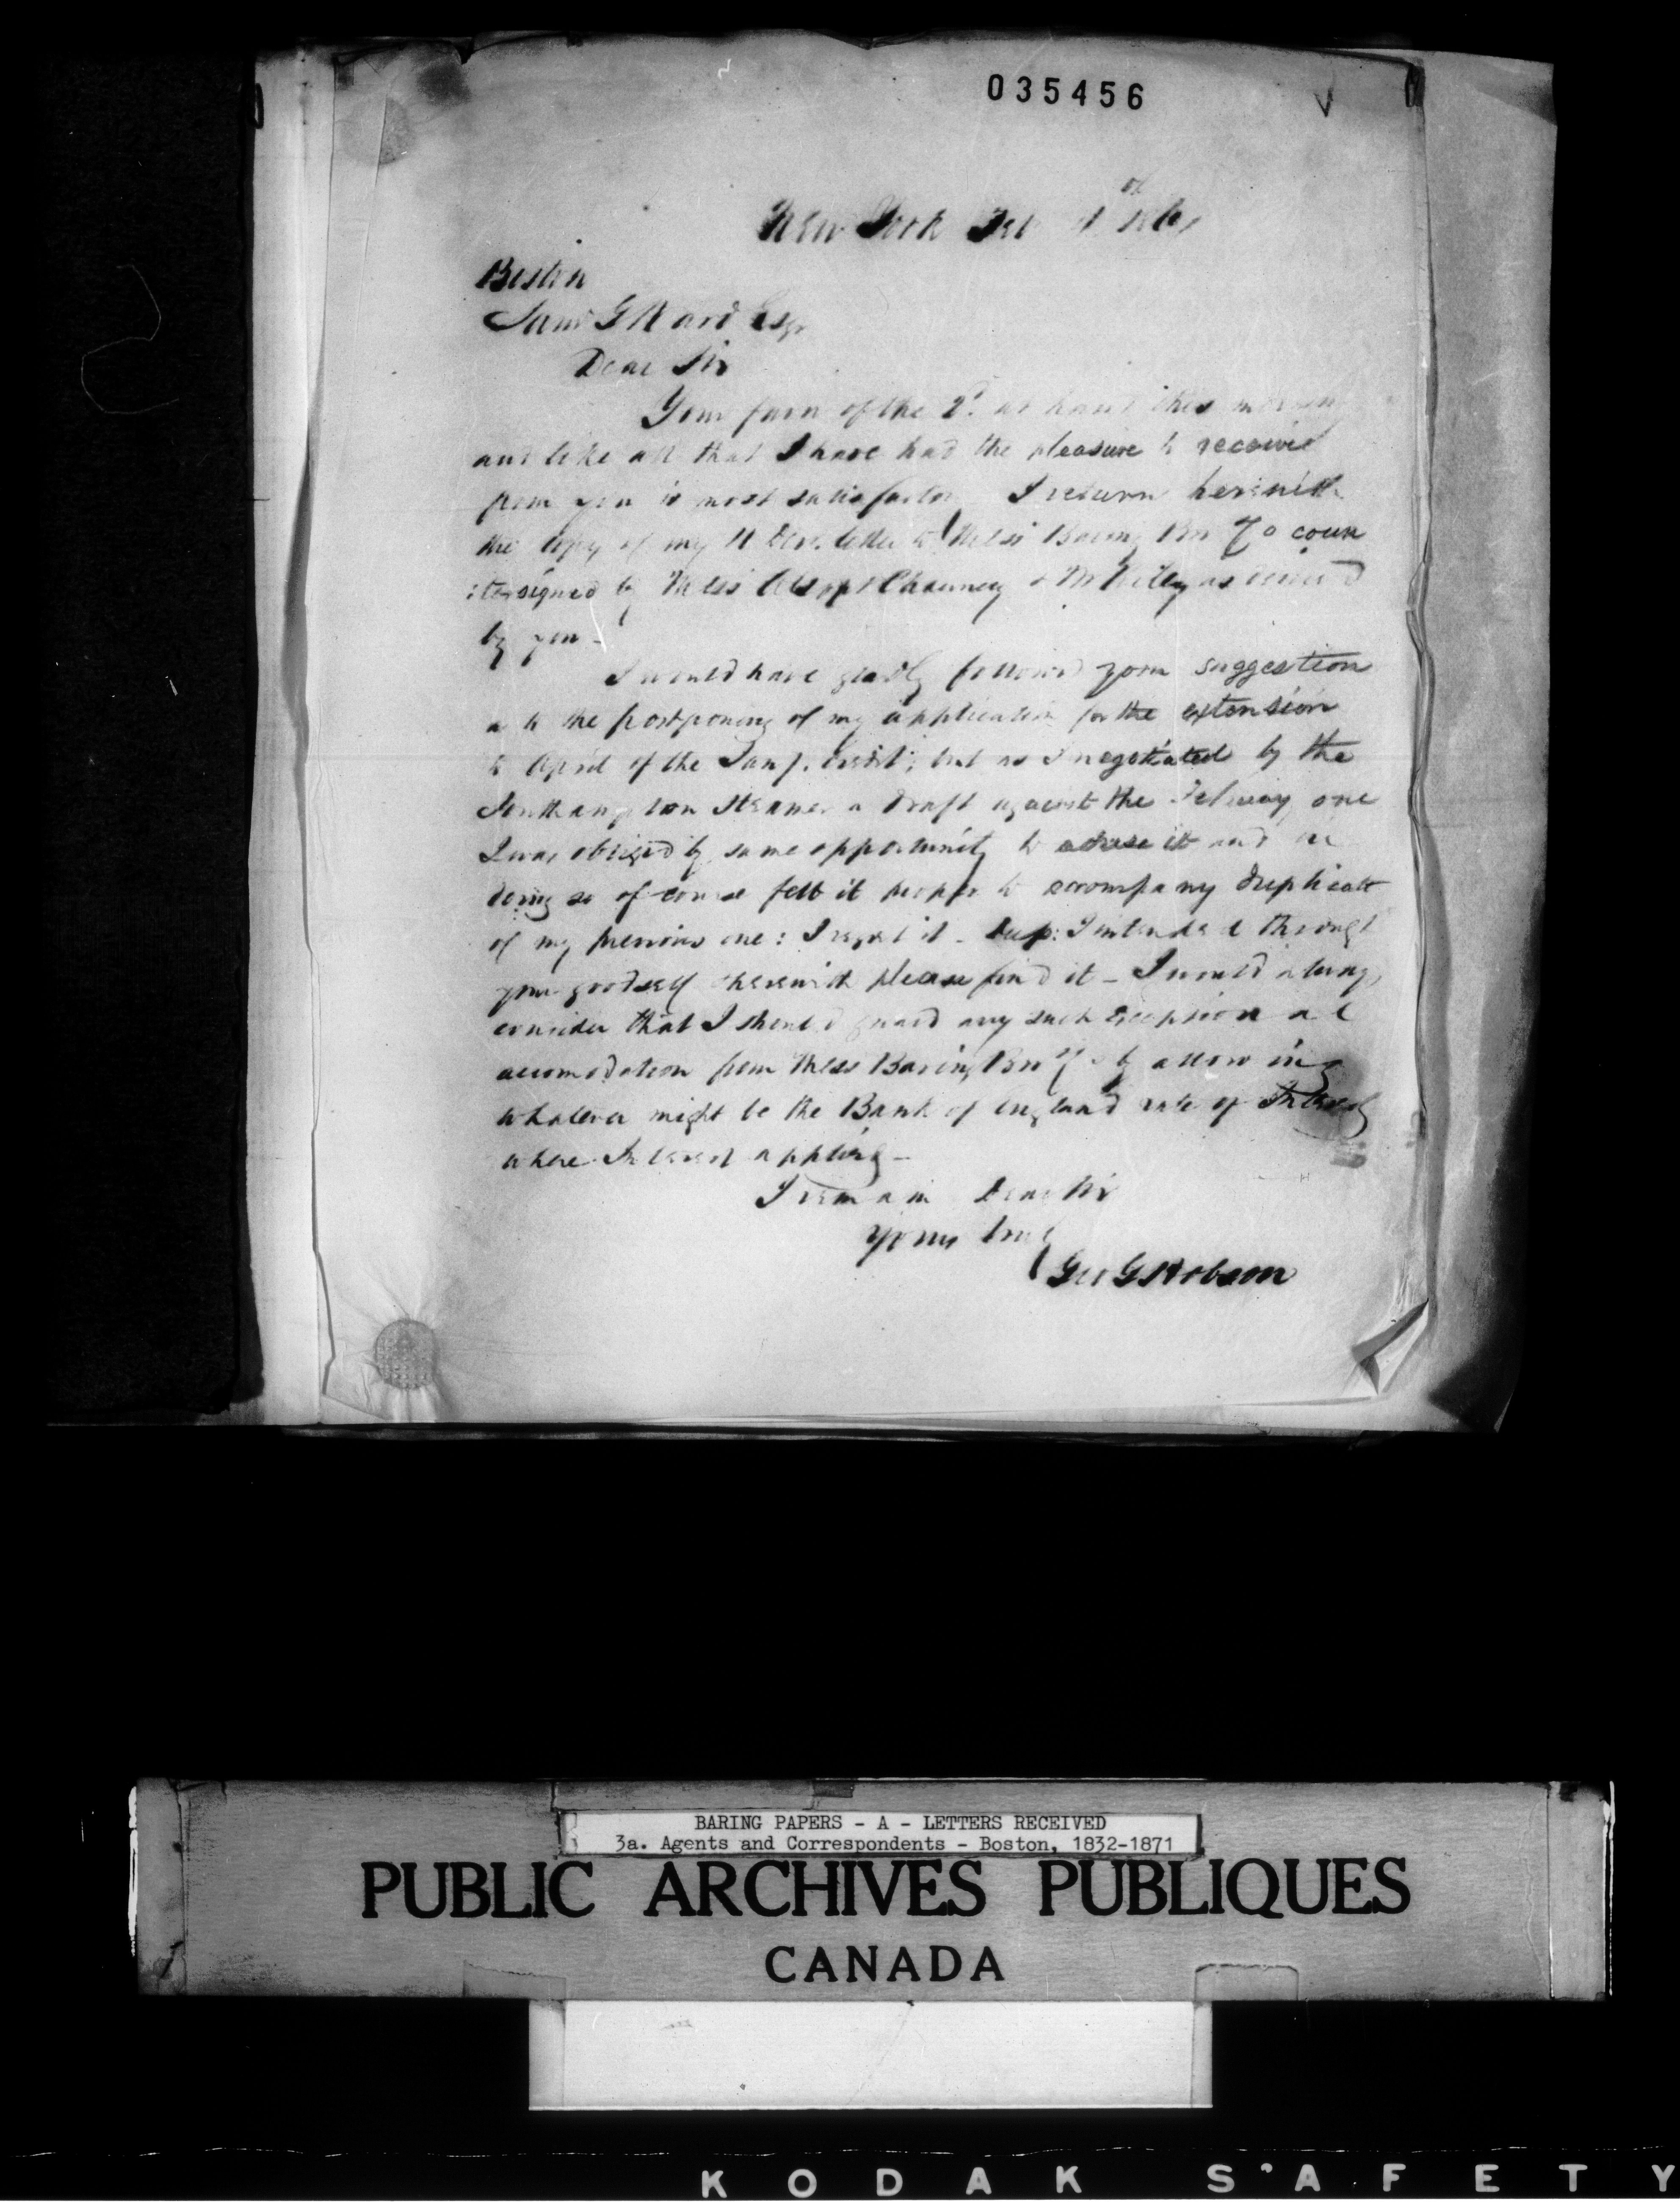 035456
New York Feb
Boston
Saml G Ward Esqr
Dear Sir
Your favr of the 2d. at hand this morning
and like all that I have had the pleasure to receive
from you is most satisfactory I return herewith
the copy of my letter to Messs Baring Bro & Co coun
:tersigned by Messs Alsop & Chauncey & Mr as desired
by you -
I would have gladly followed your suggestion
as to the postponing of my application for the extension
to April of the Jany. credit; but as I negotiated by the
Southampton Steamer a draft against the February one
I was obliged by same opportunity to advise it and in
doing so of course felt it proper to accompany duplicate
of my previous one: I regret it - Dup: I intended through
your goodself herewith please find it - I would always
consider that I should guard any such exceptional
accomodation from Messs Baring Bro & Co by allowing
whatever might be the Bank of England rate of Interest
where Interest applied -
I remain Dear Sir
Yours truly
Geo G Hobson
BARING PAPERS - A - LETTERS RECEIVED
3a. Agents and Correspondents - Boston, 1832-1871
PUBLIC ARCHIVES PUBLIQUES
CANADA
KODAK S'AFETY